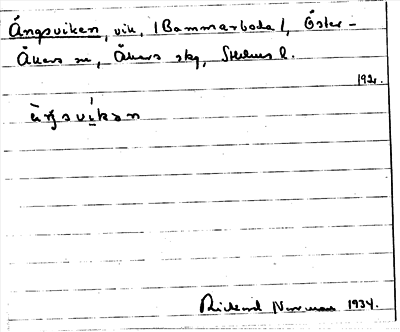 Ängsviken, vik, (Bammarboda), Öster-
Åkers sn, Åkers skg, Sthlms l.
192.
ä̀ŋsvíkən
Rickard Norrman 1934.